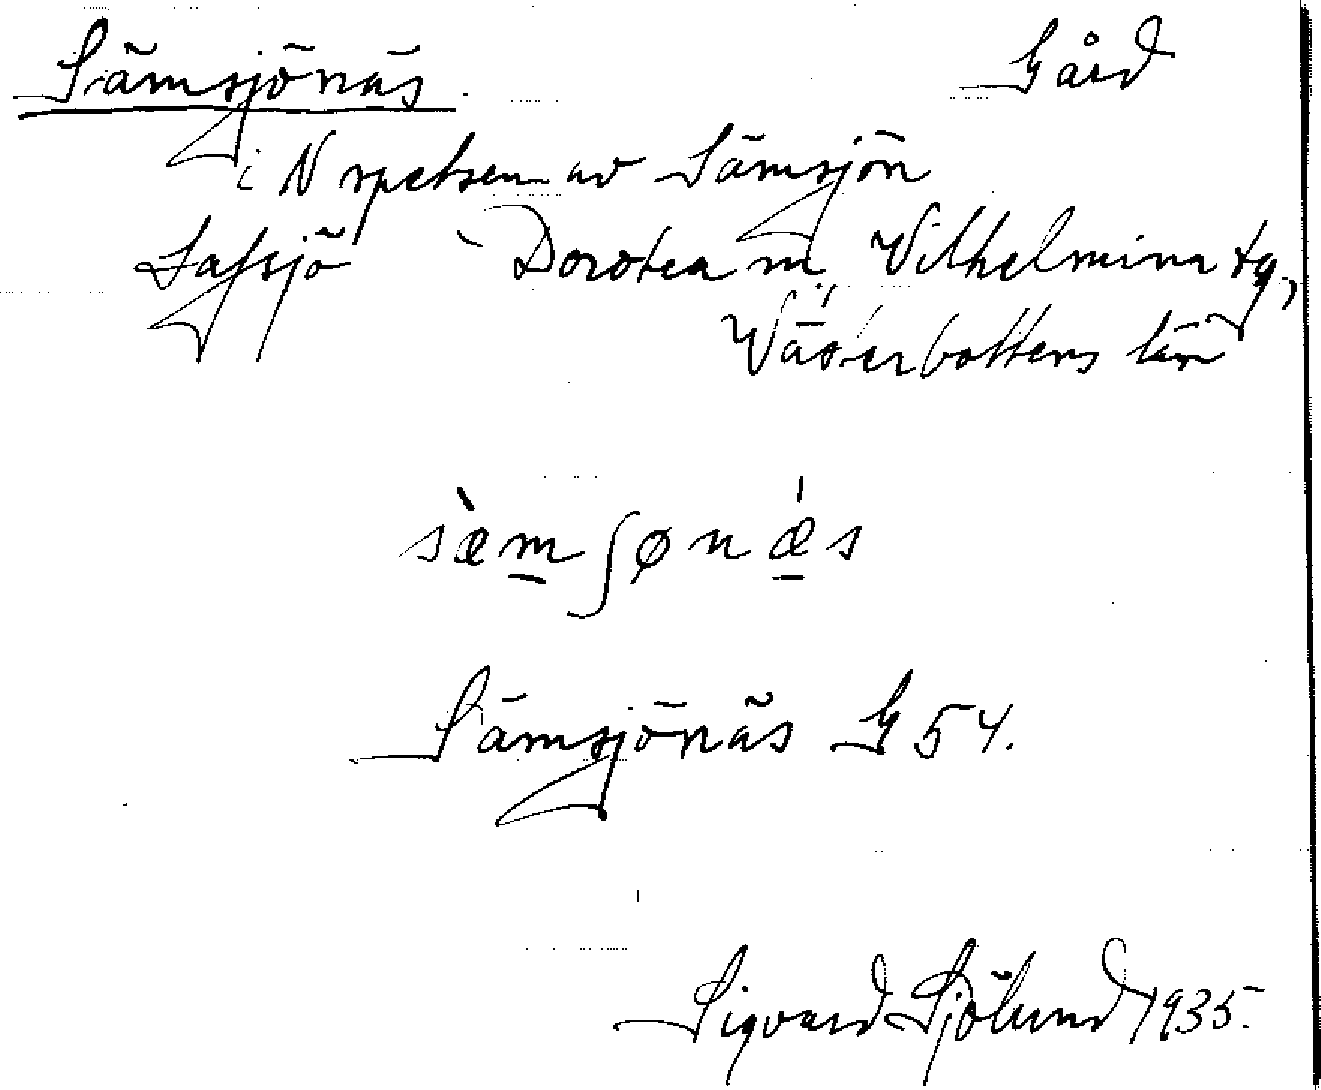 Sämsjönäs. Gård
i N spetsen av Sämsjön
Dorotea m. Vilhelmina tg,
Västerbottens län
sæ̀mʃønǽs
Sämsjönäs G 54.
Sigvard Sjölund 1935.